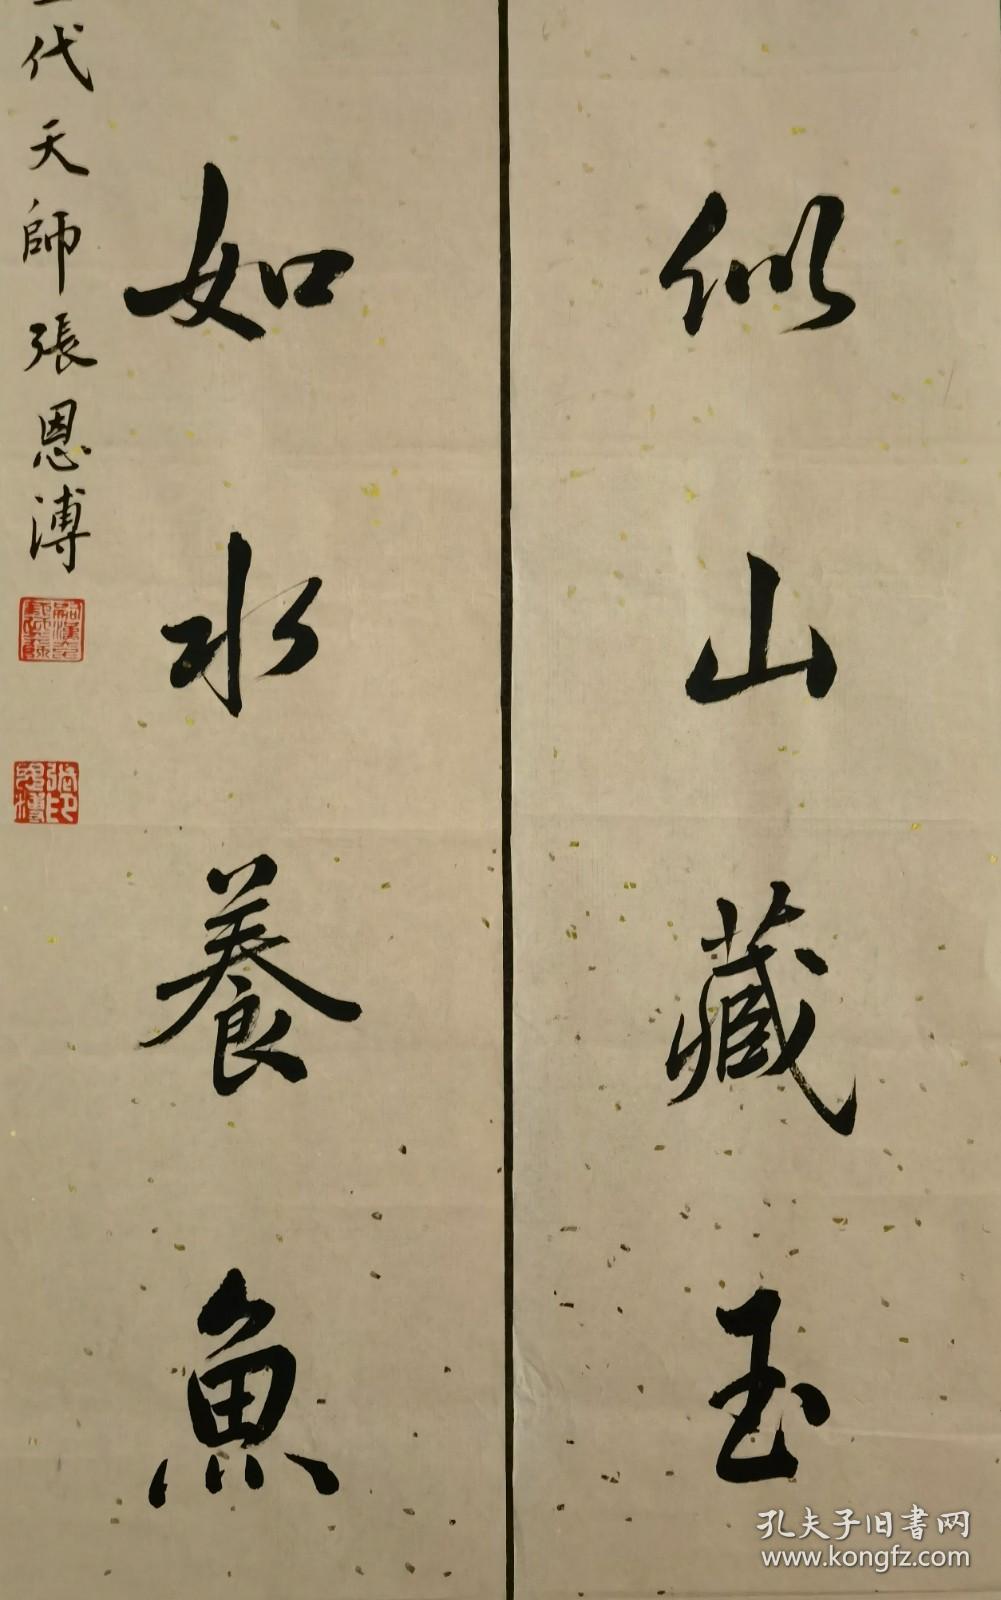 似山藏玉
如水養魚
代天師張恩溥
孔夫子旧書网
www.kongfz.com